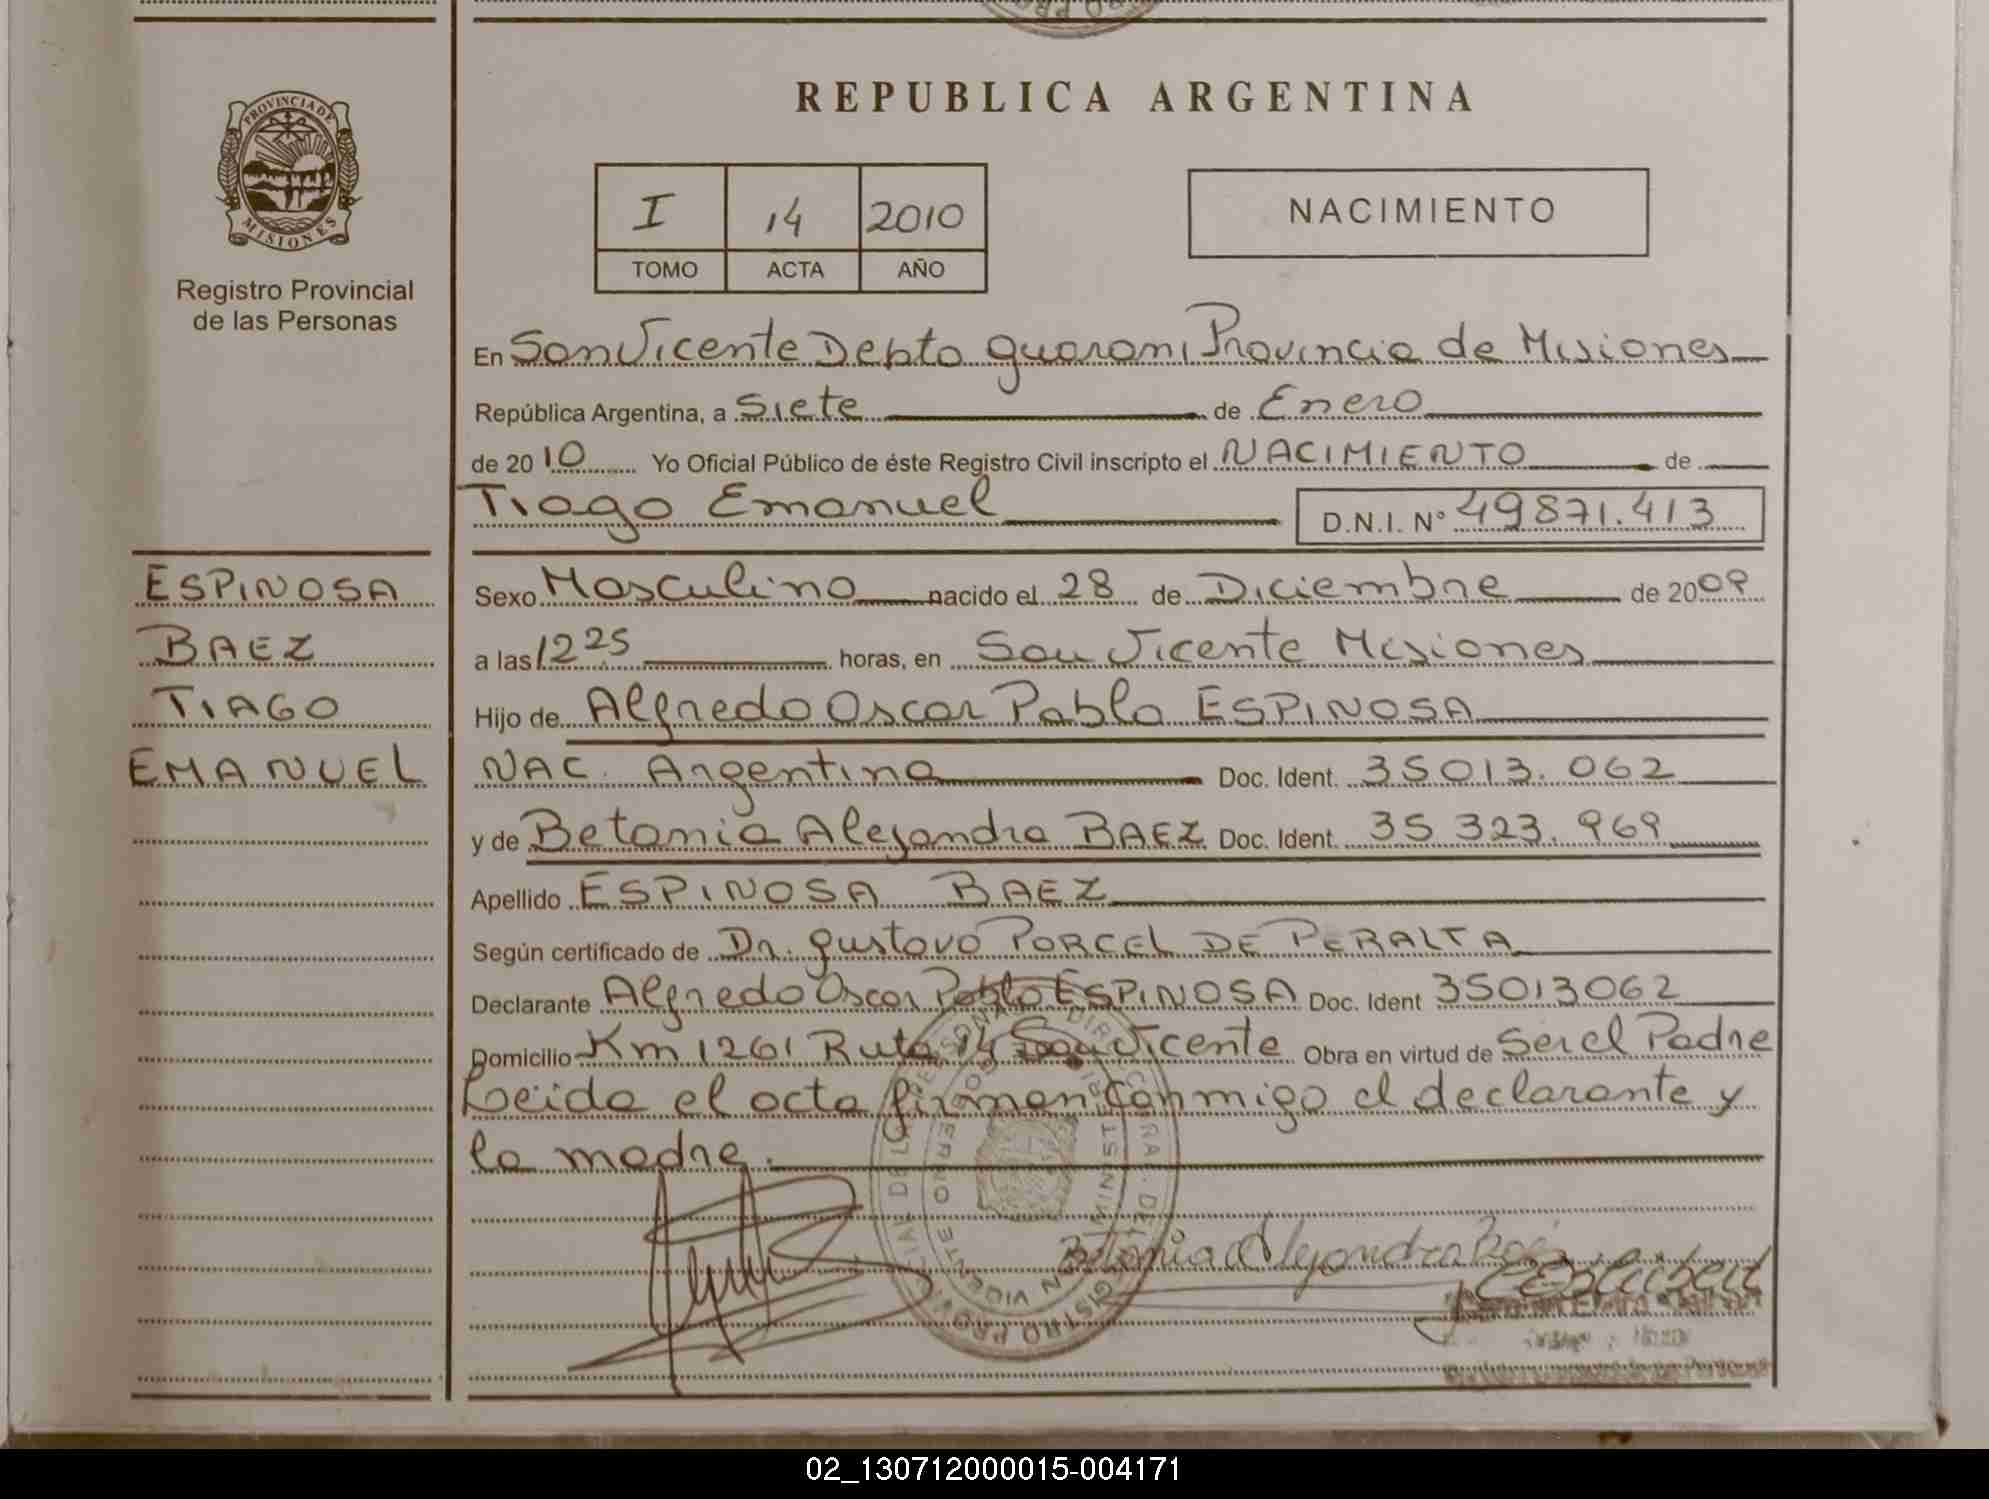 PROVINCIA DE
MISIONES
Registro Provincial
de las Personas
REPUBLICA ARGENTINA
I 14 2010
TOMO ACTA AÑO
NACIMIENTO
En San Vicente Depto Guarani Provincia de Misiones
República Argentina, a Siete de Enero
de 2010 Yo Oficial Público de éste Registro Civil inscripto el NACIMIENTO de
Tiago Emanuel D.N.I. N° 49871.413
ESPINOSA
BAEZ
TIAGO
EMANUEL
Sexo Masculino nacido el 28 de Diciembre de 2009
a las 12 25 horas, en San Vicente Misiones
Hijo de Alfredo Oscar Pablo ESPINOSA
NAC. Argentina Doc. Ident. 35013.062
y de Betania Alejandra BAEZ Doc. Ident. 35 323.969
Apellido ESPINOSA BAEZ
Según certificado de Dr. Gustavo PORCEL DE PERALTA
Declarante Alfredo Oscar Pablo ESPINOSA Doc. Ident 35013062
Domicilio Km 1261 Ruta 14 San Vicente Obra en virtud de Ser el Padre
Leida el acta firman conmigo el declarante y
la madre.
Betania Alejandra Baez
02_130712000015-004171